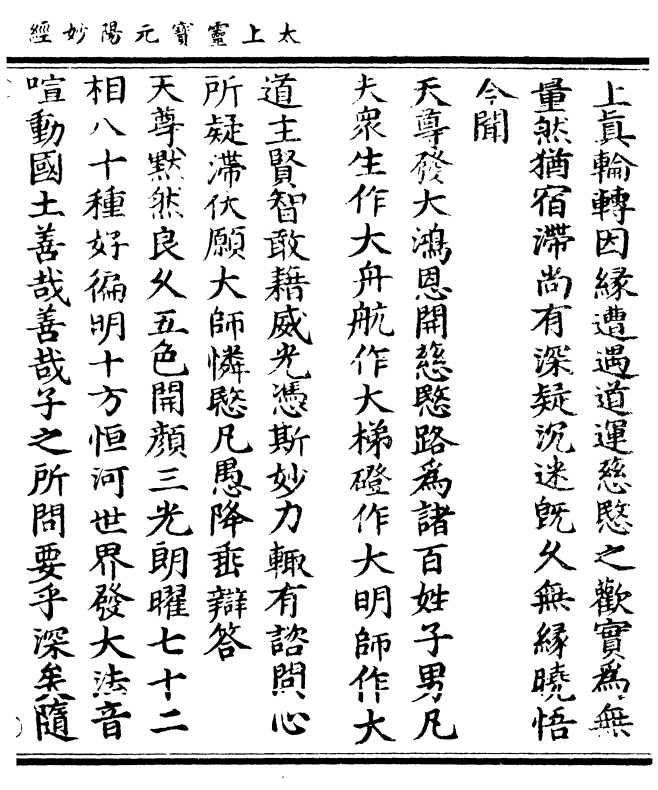 太上靈寳元陽妙經
上眞輪轉因緣遭遇道運慈愍之歡實爲無
量然猶宿滯尚有深疑沉迷旣久無緣曉悟
今聞
天尊發大鴻恩開慈愍路爲諸百姓子男凡
夫衆生作大舟航作大梯磴作大明師作大
道主賢智敢藉威光憑斯妙力輙有諮問心
所疑滯伏願大師憐愍凡愚降垂辯答
天尊默然良久五色開顔三光朗曜七十二
相八十種好徧明十方恒河世界發大法音
喧動國土善哉善哉子之所問要乎深矣隨